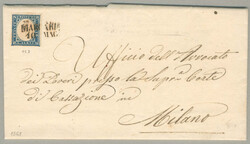 MAG
Uffizio dell'Avvocato
dei Poveri presso la Supr. Corte
di Cassazione in
Milano